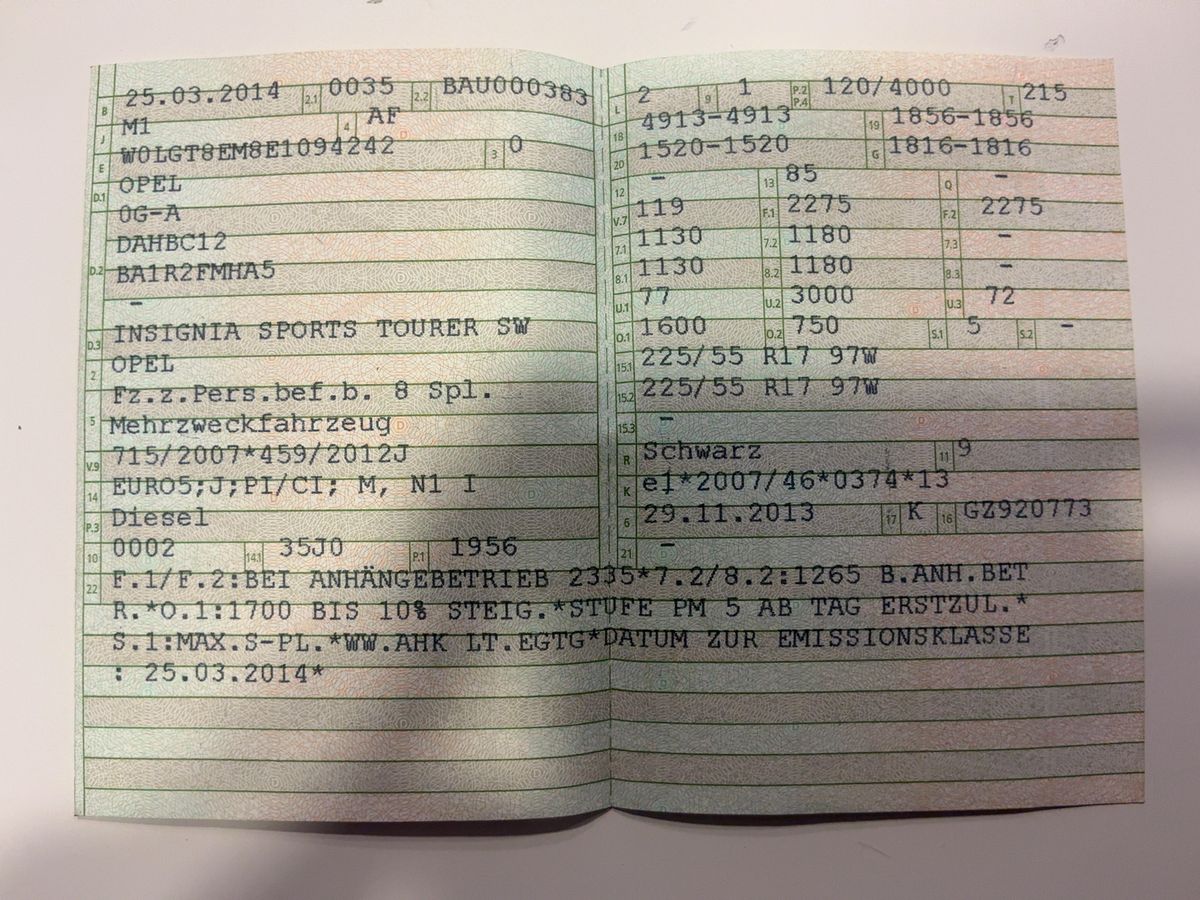 B 25.03.2014 2.1 0035 2.2 BAU000383
J M1 4 AF
E W0LGT8EM8E1094242 3 0
D.1 OPEL
0G-A
DAHBC12
D.2 BA1R2FMHA5
–
D.3 INSIGNIA SPORTS TOURER SW
2 OPEL
Fz.z.Pers.bef.b. 8 Spl.
5 Mehrzweckfahrzeug
V.9 715/2007*459/2012J
14 EURO5;J;PI/CI; M, N1 I
P.3 Diesel
10 0002 14.1 35J0 P.1 1956
L 2 9 1 P.2 P.4 120/4000 T 215
18 4913-4913 19 1856-1856
20 1520-1520 G 1816-1816
12 – 13 85 Q –
V.7 119 F.1 2275 F.2 2275
7.1 1130 7.2 1180 7.3 –
8.1 1130 8.2 1180 8.3 –
U.1 77 U.2 3000 U.3 72
O.1 1600 O.2 750 S.1 5 S.2 –
15.1 225/55 R17 97W
15.2 225/55 R17 97W
15.3 –
R Schwarz 11 9
K e1*2007/46*0374*13
6 29.11.2013 17 K 16 GZ920773
21 –
22 F.1/F.2:BEI ANHÄNGEBETRIEB 2335*7.2/8.2:1265 B.ANH.BET
R.*O.1:1700 BIS 10% STEIG.*STUFE PM 5 AB TAG ERSTZUL.*
S.1:MAX.S-PL.*WW.AHK LT.EGTG*DATUM ZUR EMISSIONSKLASSE
: 25.03.2014*